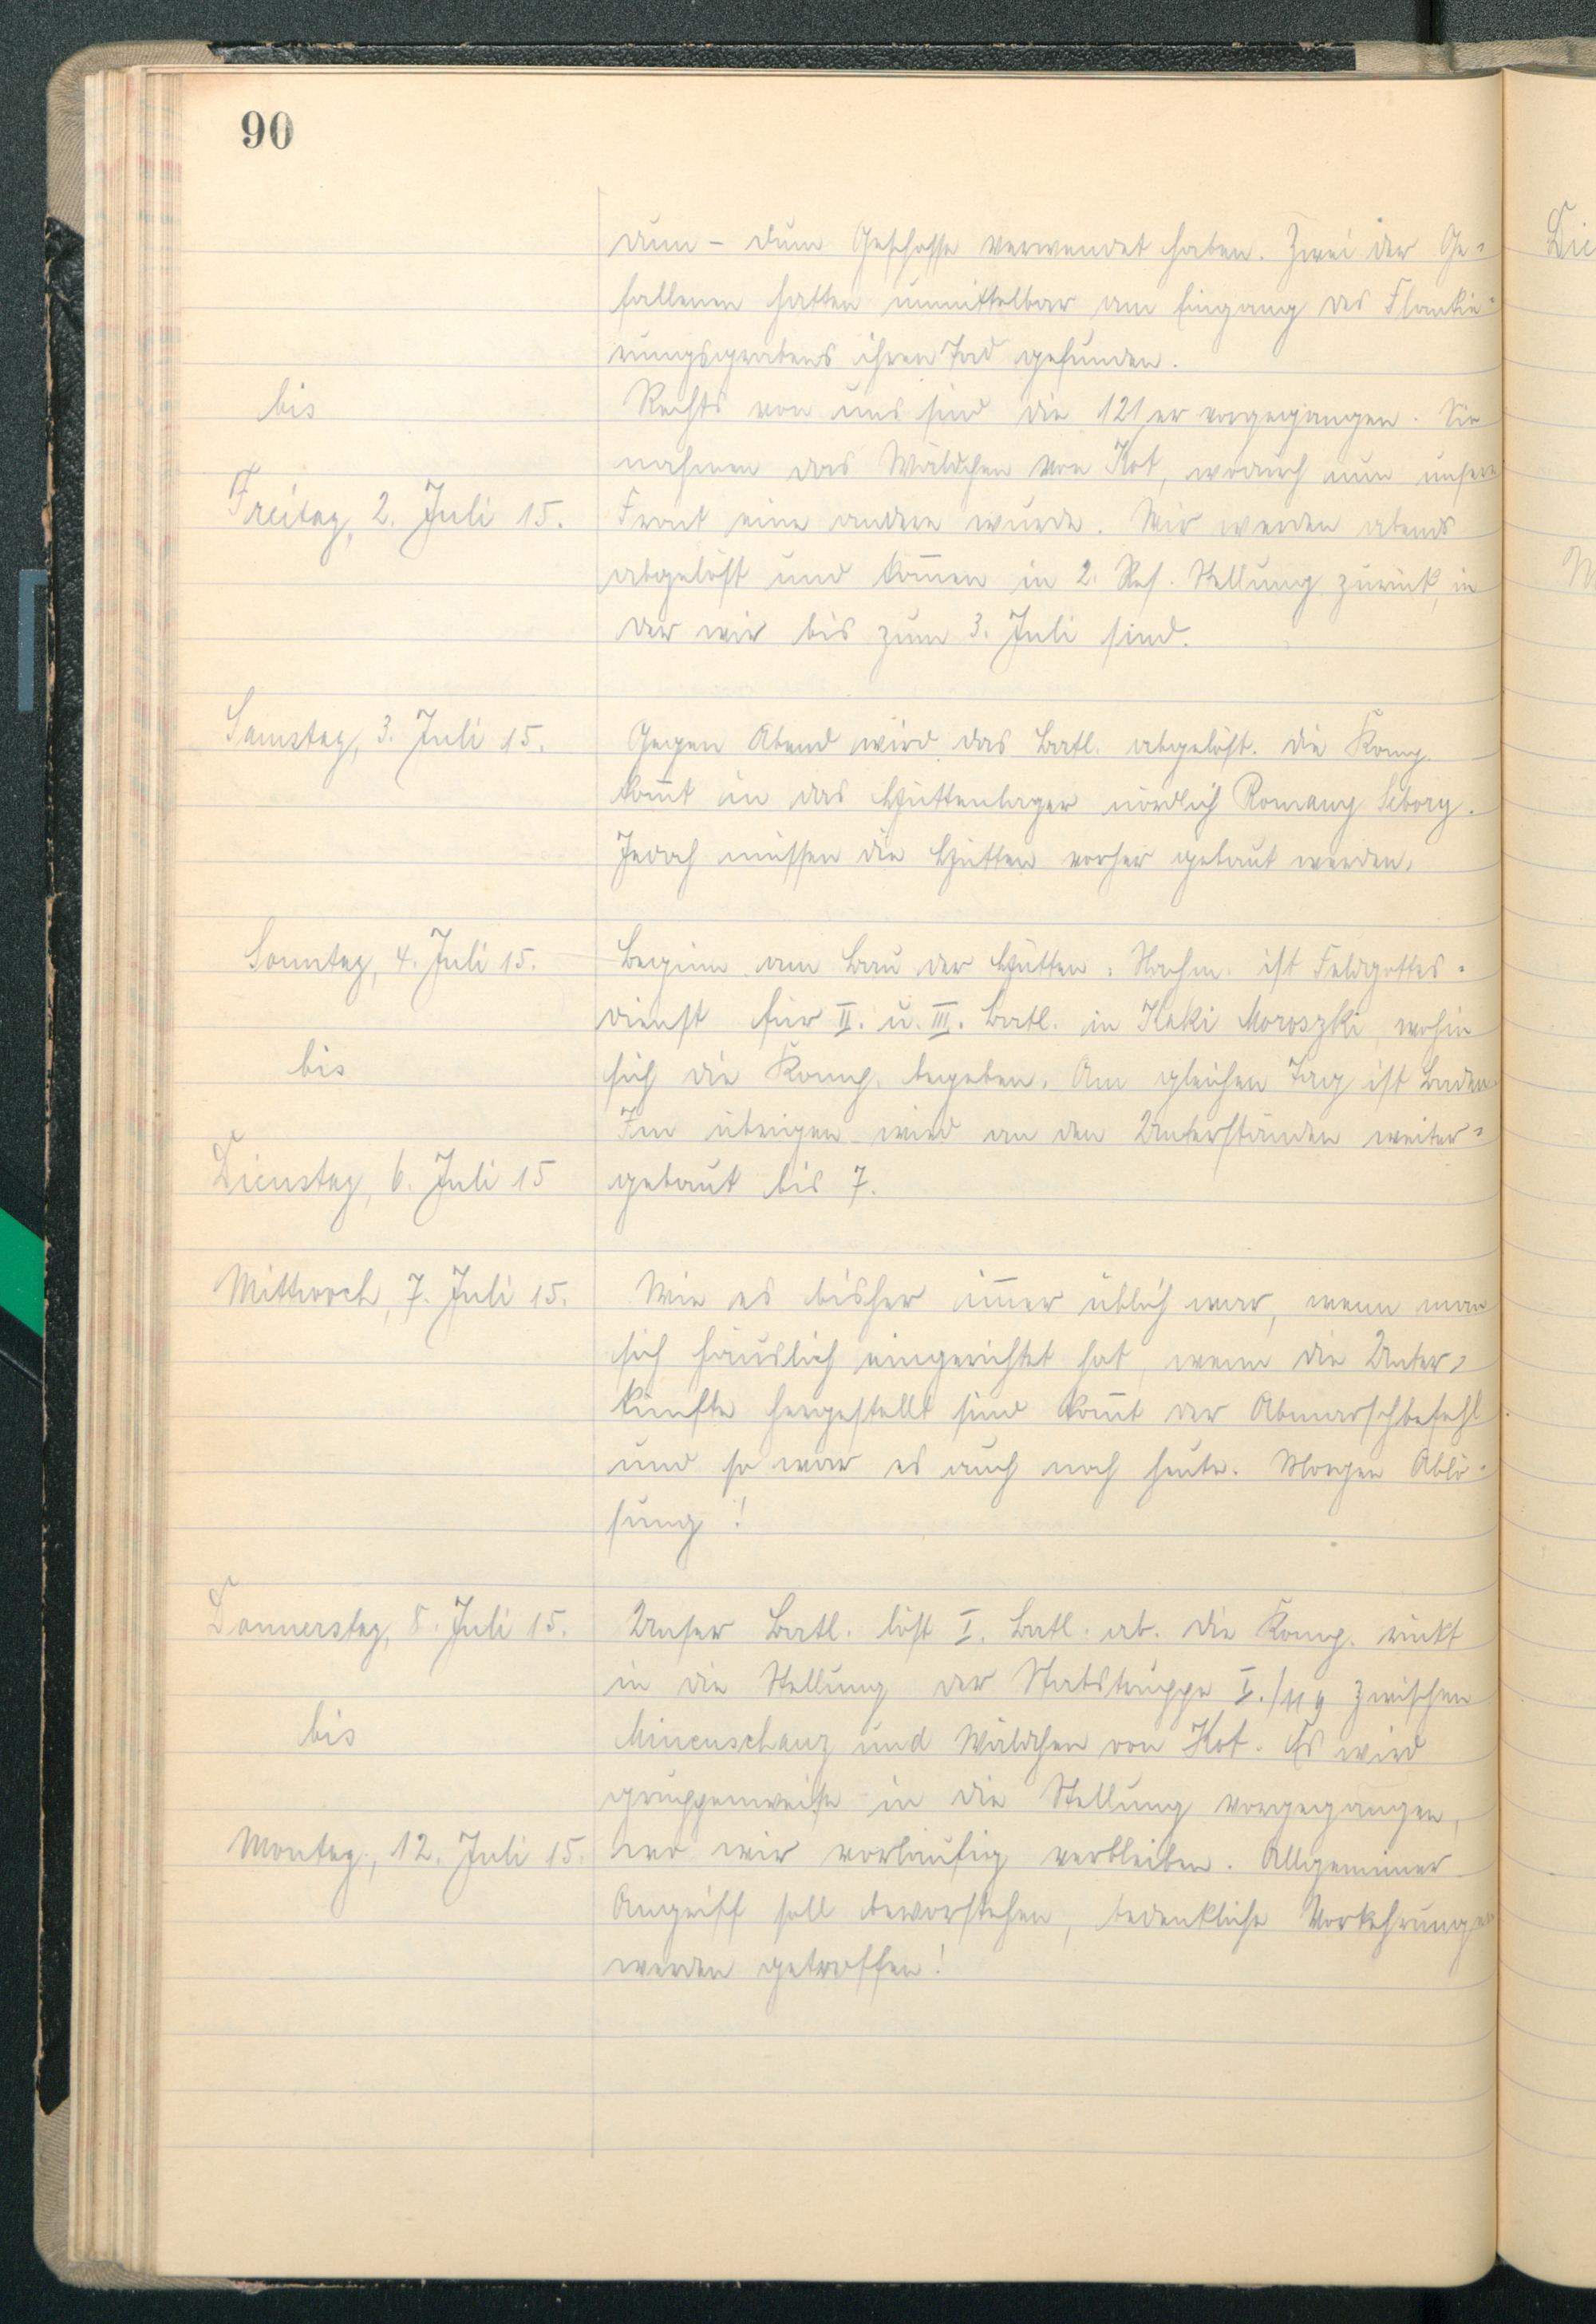 90
dum - dum Geschosse verwendet haben. Zwei der Ge-
fallenen hatten unmittelbar am Eingang des Flankie-
rungsgrabens ihren Tod gefunden.
bis
Rechts von uns sind die 121er vorgegangen. Sie
nahmen das Wäldchen von Kot, wodurch nun unsere
Freitag, 2. Juli 15.
Front eine andere wurde. Wir werden abends
abgelöst und kom̄en in 2. Res. Stellung zurück, in
der wir bis zum 3. Juli sind.
Samstag, 3. Juli 15.
Gegen Abend wird das Batl. abgelöst. Die Komp.
kom̄t in das Hüttenlager nördlich Romany Sebory.
Jedoch müssen die Hütten vorher gebaut werden.
Sonntag, 4. Juli 15.
Beginn am Bau der Hütten. Nachm. ist Feldgottes-
dienst für II. u. III. Batl. in Kaki Moroszki, wohin
bis
sich die Komp. begeben. Am gleichen Tag ist Baden.
Im übrigen wird an den Unterständen weiter-
Dienstag, 6. Juli 15
gebaut bis 7.
Mittwoch, 7. Juli 15.
Wie es bisher im̄er üblich war, wenn man
sich häuslich eingerichtet hat, wenn die Unter-
künfte hergestellt sind kom̄t der Abmarschbefehl
und so war es auch noch heute. Morgen Ablö-
sung!
Donnerstag, 8. Juli 15.
Unser Batl. löst I. Batl. ab. Die Komp. rückt
in die Stellung der Stabstruppe I./119 zwischen
bis
Minenschanz und Wäldchen von Kot. Es wird
gruppenweise in die Stellung vorgegangen,
Montag, 12. Juli 15.
wo wir vorläufig verbleiben. Allgemeiner
Angriff soll bevorstehen, bedenkliche Vorkehrungen
werden getroffen!